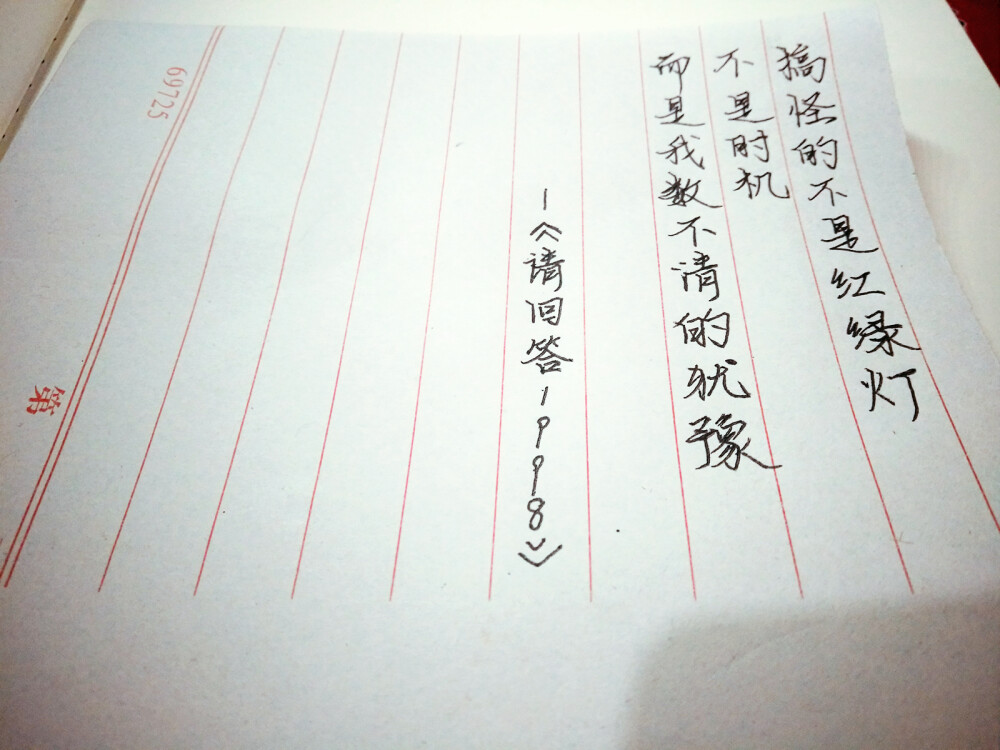 搞怪的不是红绿灯
不是时机
而是我数不清的犹豫
—《请回答1998》
69725
第